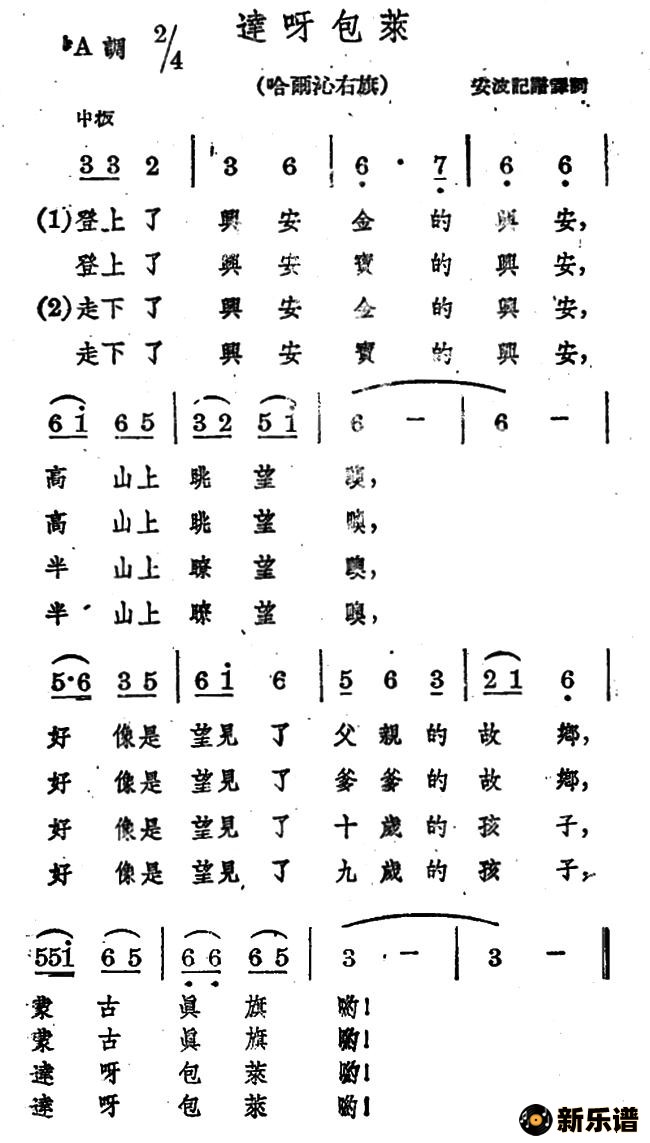 達呀包萊
♭A 調 2/4
(哈爾沁右旗) 安波記譜譯詞
中板
3 3 2 | 3 6 | 6 · 7 | 6 6 |
(1)登上了 興安 金的 興安,
登上了 興安 寶的 興安,
(2)走下了 興安 金的 興安,
走下了 興安 寶的 興安,
6 i 6 5 | 3 2 5 i | 6 − | 6 − |
高 山上 眺 望 噢,
高 山上 眺 望 噢,
半 山上 瞭 望 噢,
半 山上 瞭 望 噢,
5·6 3 5 | 6 i 6 | 5 6 3 | 2 1 6 |
好 像是 望見 了 父親的 故 鄉,
好 像是 望見 了 爹爹的 故 鄉,
好 像是 望見 了 十歲的 孩 子,
好 像是 望見 了 九歲的 孩 子,
5 5 i 6 5 | 6 6 6 5 | 3 − | 3 − ‖
蒙 古 眞 旗 喲!
蒙 古 眞 旗 喲!
達 呀 包 萊 喲!
達 呀 包 萊 喲!
新乐谱